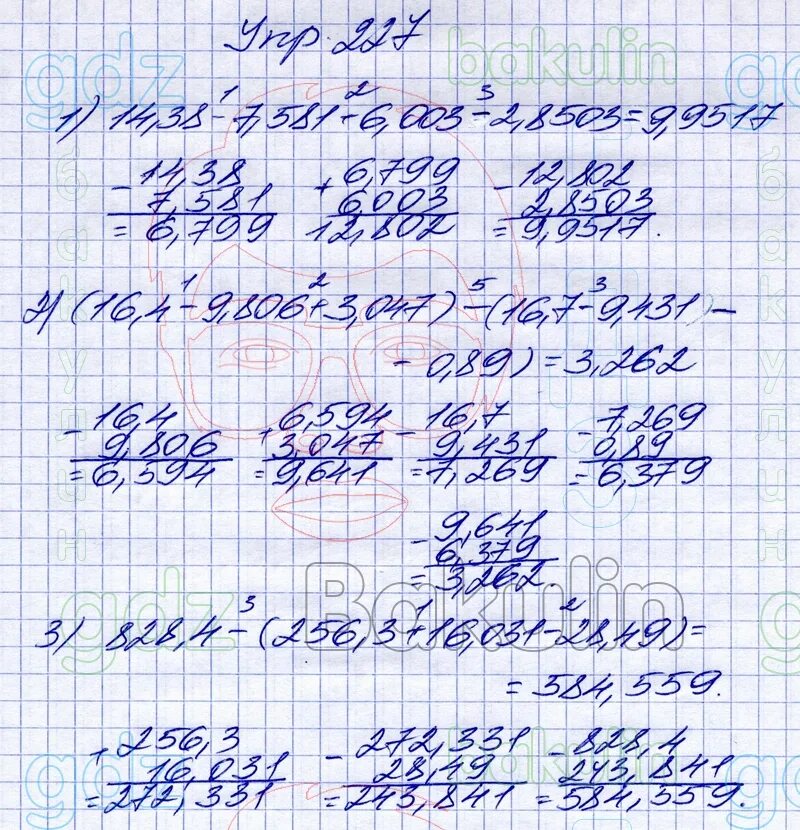 Упр. 227
gdz
bakulin
gdz
1) 14,38 - 7,581 + 6,003 - 2,8503 = 9,9517
1 2 3
- 14,38 + 6,799 - 12,802
7,581 6,003 2,8503
= 6,799 12,802 = 9,9517.
2) (16,4 - 9,806 + 3,047) - (16,7 - 9,431) -
1 2 5 3
- 0,89) = 3,262
- 16,4 + 6,594 - 16,7 - 7,269
9,806 3,047 9,431 0,89
= 6,594 = 9,641 = 7,269 = 6,379
- 9,641
6,379
= 3,262.
gdz
Bakulin
3) 828,4 - (256,3 + 16,031 - 28,49) =
3 1 2
= 584,559.
+ 256,3 - 272,331 - 828,4
16,031 28,49 243,841
= 272,331 = 243,841 = 584,559.
gdz
bakulin
бакулин
бакулин